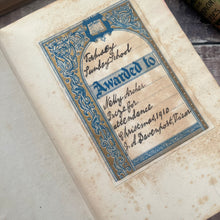 Sunday School
Awarded to
Nelly Archer
Prize for
Attendance
Christmas, 1910.
J. A. Davenport, Vicar